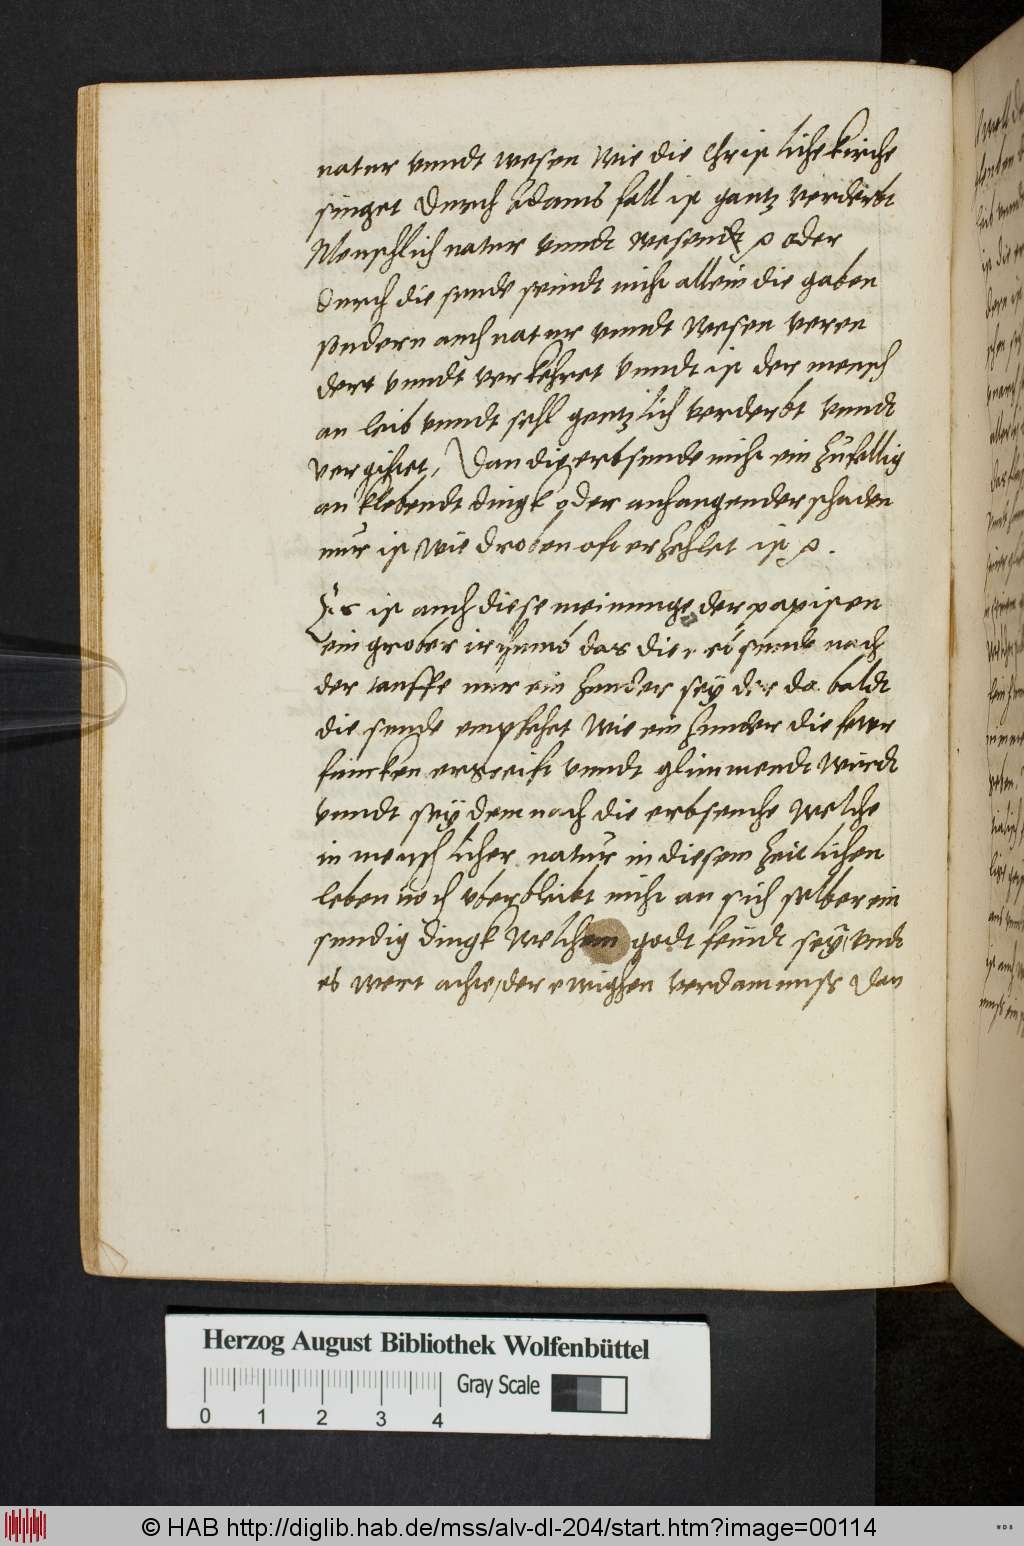 natur vnndt wesen wie die christliche kirche
singet durch Adams fall ist gantz verderbt
Menschlich natur vnndt wesendt oder
durch die sunde seindt nicht allein die gaben
sondern auch natur vnndt wesen veren
dert vnndt verkehret vnndt ist der mensch
an leib vnndt sehl gentzlich verderbt vnndt
vergifftet, Dan die erbsunde nicht ein zufellig
an klebendt dingk oder anhangender schaden
nur ist wie droben oft erzehlet ist
Es ist auch diese meinunge der papisten
ein grober irthumb das die erbsunde nach
der tauffe nur ein zunder sey der da baldt
die sunde empfehet wie ein zunder die fewr
funcken ergreift vnndt glimmendt wirdt
vnndt sey demnach die erbseuche welche
in menschlicher natur in diesem zeitlichen
leben noch vberbleibt nicht an sich selber ein
sundig dingk welchem godt feindt sey, vnd
es wert achte, der ewighen verdamnuss Dan
Herzog August Bibliothek Wolfenbüttel
0 1 2 3 4 Gray Scale
© HAB http://diglib.hab.de/mss/alv-dl-204/start.htm?image=00114